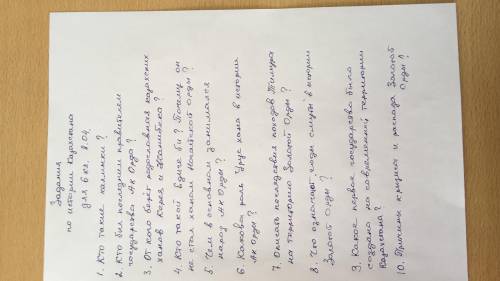 Задания
по истории Казахстана
для 6 кл. 8.04.
1. Кто такие калмыки?
2. Кто был последним правителем
государства Ак Орда?
3. От кого берёт родословная казахских
ханов Керея и Жанибека?
4. Кто такой Едиге би? Почему он
не стал ханом Ногайской Орды?
5. Чем в основном занимался
народ Ак Орды?
6. Какова роль Урус хана в истории
Ак Орды?
7. Описать последствия походов Тимура
на территорию Золотой Орды?
8. Что означают „годы смуты" в истории
Золотой Орды?
9. Какое первое государство было
создано на современной территории
Казахстана?
10. Причины кризиса и распада Золотой
Орды?